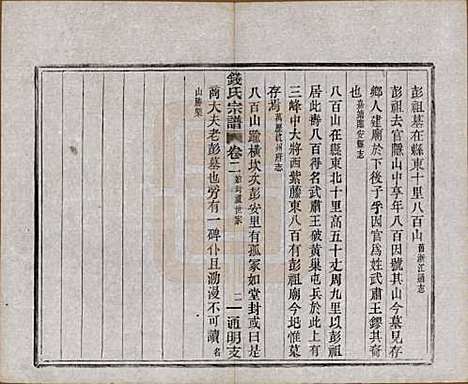 彭祖墓在縣東十里八百山舊浙江通志
彭祖去官隱山中享年八百因號其山今墓見存
鄉人建廟於下後子孚因官爲姓武肅王鏐其裔
也嘉靖臨安縣志
八百山在縣東北十里高五十丈周九里以彭祖
居此壽八百得名武肅王破黃巢屯兵於此今有
三峰中大將西紫藤東八百有彭祖廟今圮惟墓
存焉萬曆杭州府志
錢氏宗譜 卷二 二 通明支
八百山鎻橫坎次彭安里有孤冢如堂封或曰是
商大夫老彭墓也旁有一碑仆且泐漫不可讀名
山勝槩